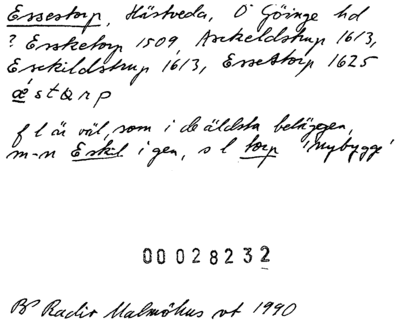 Essestorp, Hästveda, Ö Göinge hd
? Essketorp 1509, Asskeldstrup 1613,
Esskildstrup 1613, Essetorp 1625
ǽ s t ɷ r p
f l är väl, som i de äldsta beläggen,
m-n Eskil i gen, s l torp 'nybygge'
00028232
BP Radio Malmöhus vt 1990